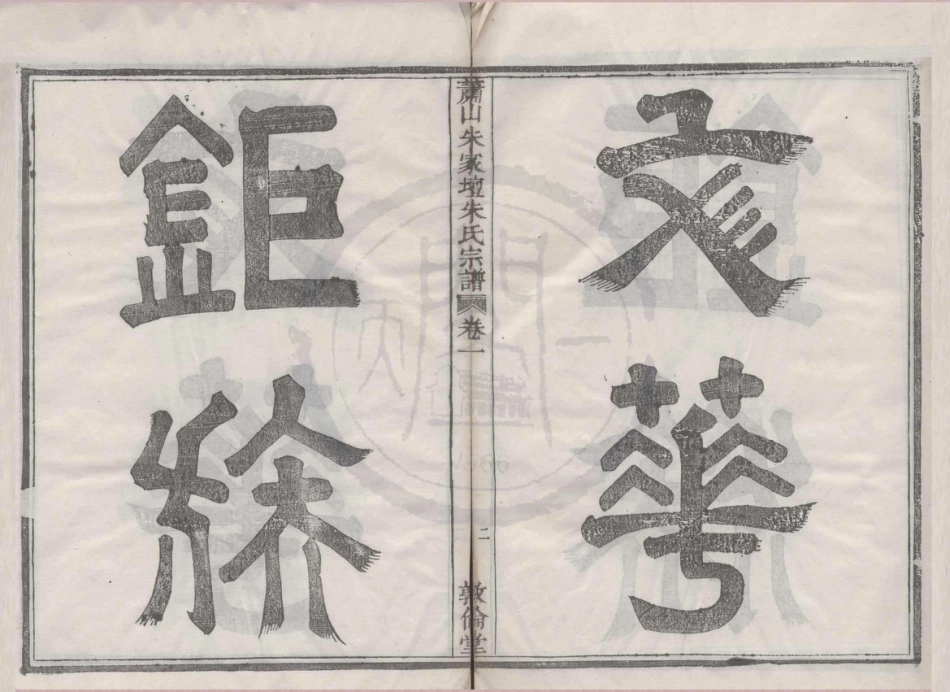 彣華
蕭山朱家壇朱氏宗譜 卷一 二 敦倫堂
鉅